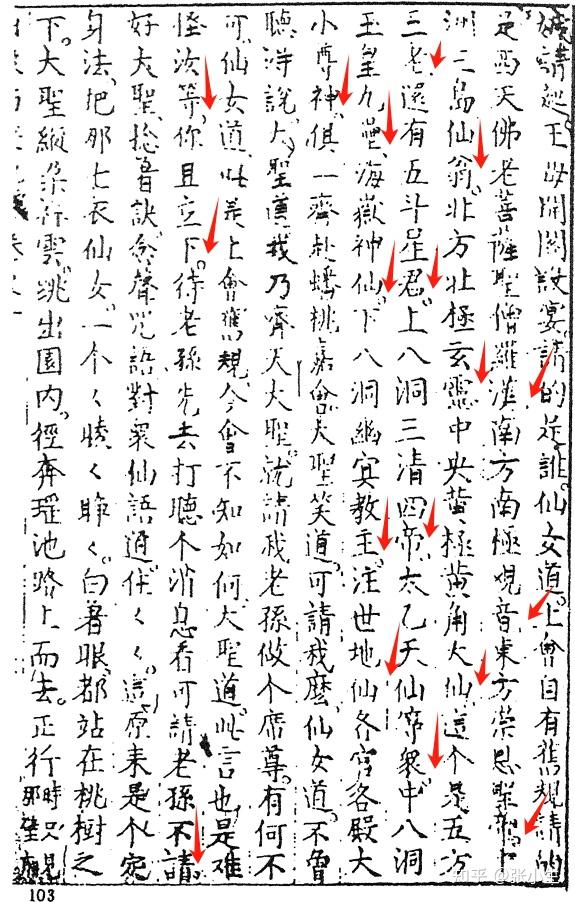 嬌請起王母開閣設宴請的是誰仙女道上會自有舊規請的
是西天佛老菩薩聖僧羅漢南方南極觀音東方崇恩聖帝十
洲三島仙翁北方北極玄靈中央黄極黄角大仙這个是五方
三老還有五斗星君上八洞三清四帝太乙天仙等衆中八洞
玉皇九壘海嶽神仙下八洞幽冥教主注世地仙各宫各殿大
小尊神俱一齊赴蟠桃嘉會大聖笑道可請我麽仙女道不曾
聽淂說大聖道我乃齊天大聖就請我老孫做个席尊有何不
可仙女道此是上會舊規今會不知如何大聖道此言也是难
怪汝等你且立下待老孫先去打聽个消息看可請老孫不請
好大聖捻着訣念聲咒語對衆仙語道住く く這原来是个定
身法把那七衣仙女一个く睖く睁く白着眼都站在桃樹之
下大聖縱朵祥雲跳出園内徑奔瑶池路上而去正行時只見那壁廂
103
知乎 @张小